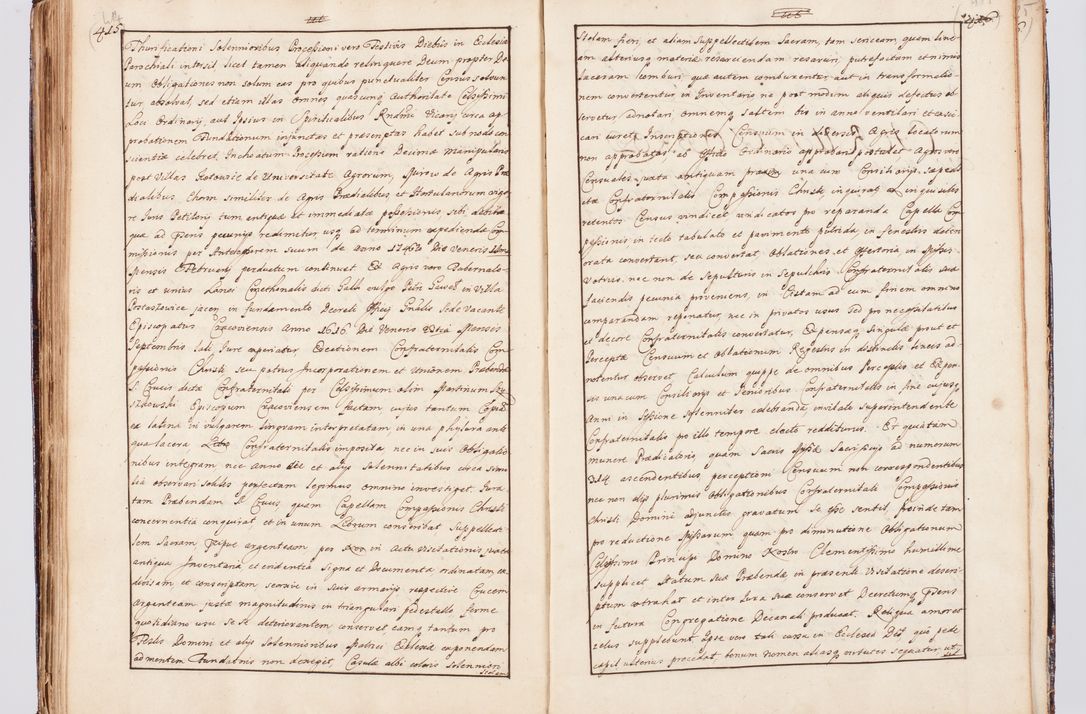 415
Thurificationi Solennioribus Processioni vero Festivis Diebus in Ecclesia
Parochiali intersit licet tamen aliquando relinquere Deum propter De
um Obligationes non solum eas pro quibus punctualiter Census solvun
tur absolvat, sed etiam illas omnes quascunq Authoritate Celsissimi
Loci Ordinarij, aut Ipsius in Spiritualibus Rndmi Vicarij circa ap
probationem Fundationum injunctas et praescriptas habet sub nodo con
scientiae celebret, Inchoatum Processum ratione Decimae Manipularis
post Villas de Universitate Agrorum, de Agris Prae
dialibus similiter de Agris Praedialibus et Hortulanorum vigo
re Juris Petitorij tum antiquae et immediatae possessionis sibi debitae
quae ad psens pecunijs redimitur, usq ad terminum expediendae Com
missionis per Antecessorem suum de Anno Die Veneris
spensis perductum continuet Ex Agris vero Tabernato
ris et unius Lanei Cmethonalis dicti Galla vulgo Petri in Villa
jacen in fundamento Decreti Officij Sede Vacante
Episcopatus Cracoviensis Anno 1616 Die Veneris Mensis
Septembris lati Jure experiatur, Erectionem Confraternitatis Com
passionis Christi seu potius Incorporationem et Unionem Praebendae
S. Crucis dictae Confraternitati per Celsissimum olim Martinum Szy
szkowski Episcopum Cracoviensem factam cujus tantum Copia
ex latina in vulgarem linguam interpretatam, in una phylura anti
qua lacera, Confraternitatis imposita nec in suis Obligatio
nibus integram nec Anno et alijs Solennitatibus circa simi
lia observari solitis perfectam legimus omnino investiget Jura
tam Praebendam S Crucis quam Capellam Compassionis Christi
concernentia conquirat et in unum Librum conscribat Supellecti
lem Sacram argenteam per in Actu Visitationis juxta
antiqua Inventaria et evidentia Signa et Documenta ordinatam, ex
dossam et conscriptam servare in suis armarijs respective Crucem
Argenteam justae magnitudinis in triangulari pedestallo ferme
quotidiano usu se se deteriorantem conservet, eamq tantum pro
Festis Domini et alijs Solennioribus Matrici Ecclesiae exponendam
ad mentem Fundatris non deneget, Casula albi coloris Solenniori
Stolam
Stolam fieri, et aliam Suppellectilem Sacram, tam sericeam quam line
am alteriusq materiae resarciendam resarciri, putrefactam et nimis
laceram comburi, quae autem comburentur, aut in transformatio
nem convertentur, in Inventario ne post modum aliquis defectus ob
servetur adnotari omnemq saltem bis in anno ventilari et exsic
cari curet, Inscriptiones Censuum in diversis Agris locatorum
non approbatas ab Officio Ordinario approbandas
Censuales juxta antiquam praxim una cum Consiliarijs saepedi
ctae Confraternitatis Compassionis Christi inquirat ex inquisitis
retentos Census vindicet vindicatos pro reparanda Capella Com
passionis in tecto tabulato et pavimento putrida, in fenestris deteri
orata convertant, seu convertat Oblationes et Offertoria in
Votivis nec non de Sepulturis in Sepulchro Confraternitatis suae
faciendis pecunia proveniens, in Cistam ad eum finem omnino
comparandam reponatur, nec in privatos usus Sed pro necessitatibus
et decore Confraternitatis convertatur, Expensas Singulae prout et
Percepta Censuum et Oblationum Regestris in distinctis lineis ad
notentur observet Calculum quippe de omnibus Perceptis et Expen
sis una cum Consiliarijs et Senioribus Confraternitatis in fine cujusq
Anni in Sessione Solenniter celebranda, invitato Superintendente
Confraternitatis pro illo tempore electo redditurus. Et quia tam
munere Praedicatoris, quam Sacris Missae Sacrificijs ad numerum
314 ascendentibus perceptioni Censuum non correspondentibus
nec non alijs plurimis Obligationibus Confraternitati Compassionis
Christi Domini adjunctis gravatum se esse sentit, proinde tam
pro reductione Missarum quam pro diminutione Obligationum
Celsissimo Principi Domino Nostro Clementissimo humillime
supplicet Statum suae Praebendae in praesenti Visitatione descri
ptum extrahat et inter Jura sua conservet Decretumq psens
in futura Congregatione Decanali producat. Reliqua amor et
zelus supplebunt. Ipse vero tali cursu in Ecclesia Dei quo pede
capit ulterius procedat, bonum nomen aliasq virtutes sequatur, ut
sed